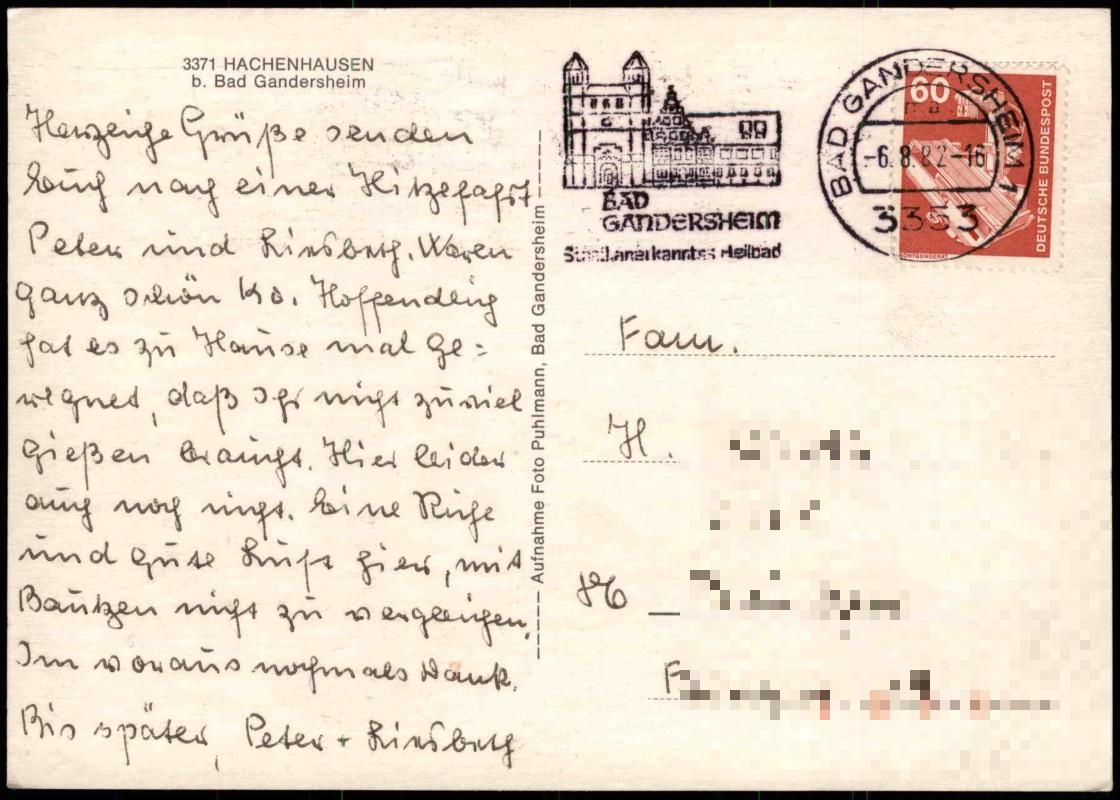 3371 HACHENHAUSEN
b. Bad Gandersheim
Herzliche Grüße senden
Euch nach einer Hitzefahrt
Peter und Liesbeth. Waren
ganz schön k.o. Hoffendlich
hat es zu Hause mal ge=
regnet, daß Ihr nicht zuviel
gießen braucht. Hier leider
auch noch nicht. Eine Ruhe
und gute Luft hier, mit
Bautzen nicht zu vergleichen,
Im voraus nochmals Dank.
Bis später, Peter + Liesbeth
Aufnahme Foto Puhlmann, Bad Gandersheim
BAD
GANDERSHEIM
Staatl. anerkanntes Heilbad
BAD GANDERSHEIM 1
-6.8.82-16
3353
60
DEUTSCHE BUNDESPOST
Fam.
H.